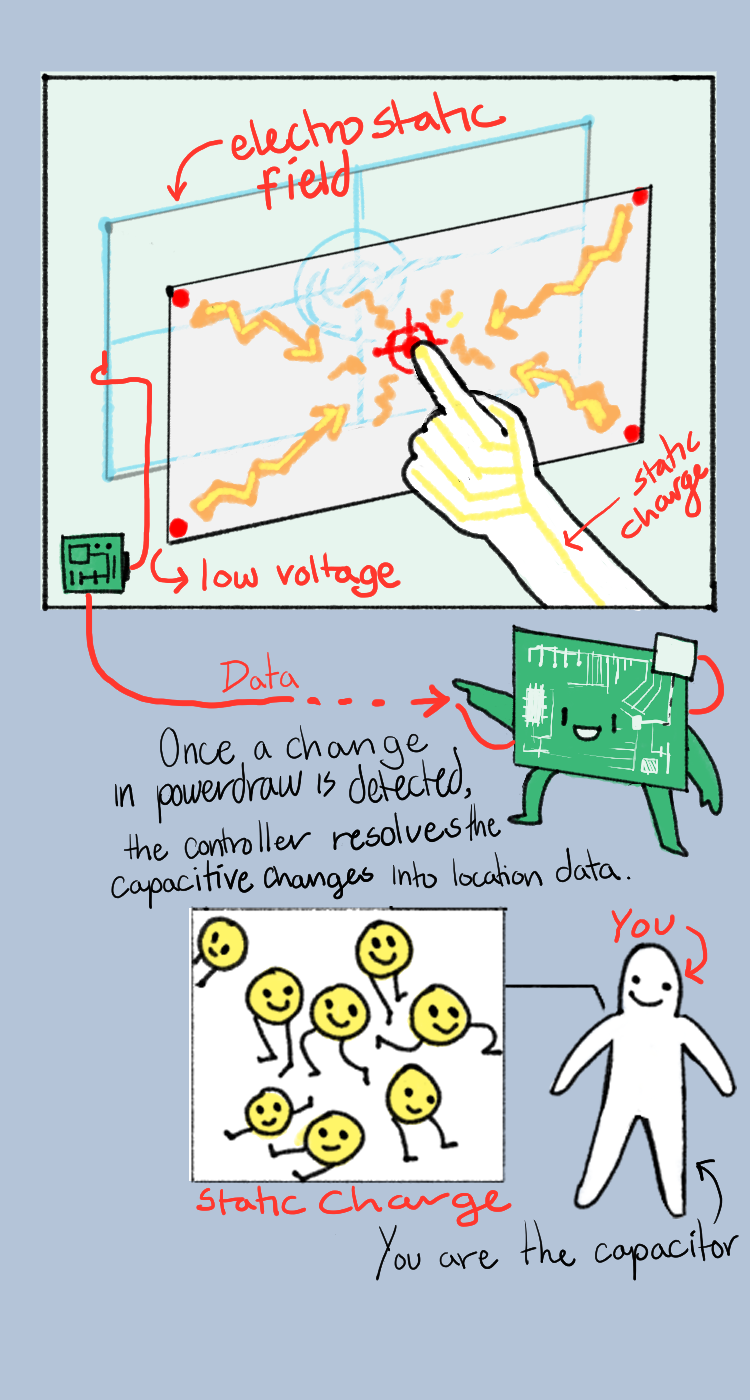 electrostatic
field
static
charge
low voltage
Data
Once a change
in powerdraw is detected,
the controller resolves the
capacitive changes into location data.
You
Static Charge
You are the capacitor